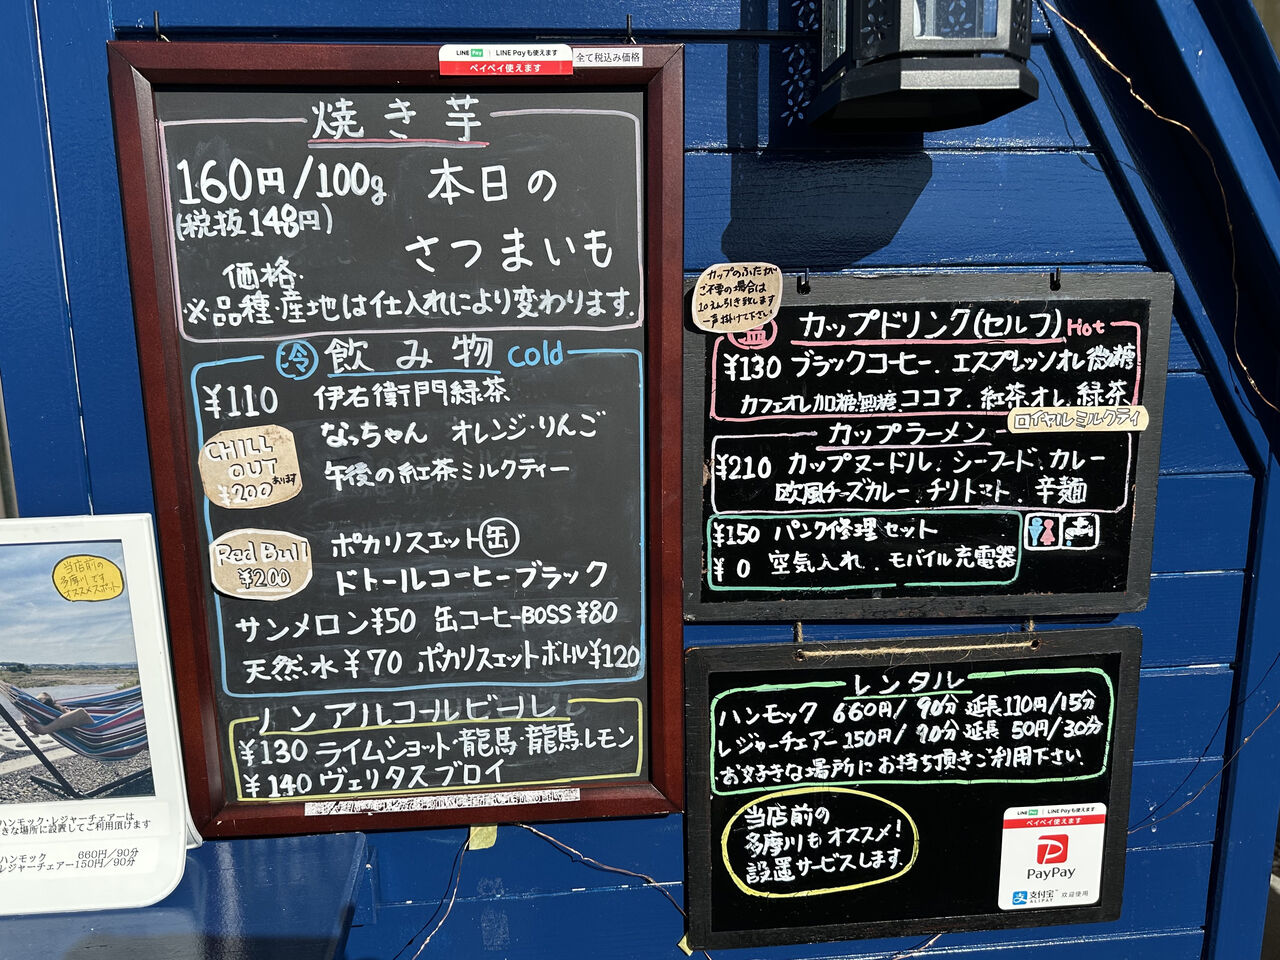 LINE Pay LINE Payも使えます
ペイペイ使えます
全て税込み価格
焼き芋
160円/100g 本日の
(税抜148円)
さつまいも
価格
※品種・産地は仕入れにより変わります.
冷 飲み物 Cold
¥110 伊右衛門緑茶
なっちゃん オレンジ・りんご
CHILL OUT ¥200 あります
午後の紅茶ミルクティー
Red Bull ¥200
ポカリスエット缶
ドトールコーヒーブラック
サンメロン¥50 缶コーヒーBOSS¥80
天然.水¥70 ポカリスエットボトル¥120
ノンアルコールビール
¥130 ライムショット・龍馬・龍馬レモン
¥140 ヴェリタスブロイ
カップのふたが
ご不要の場合は
10えん引き致します
一声掛けて下さい
温 カップドリンク(セルフ) Hot
¥130 ブラックコーヒー. エスプレッソオレ微糖
カフェオレ加糖無糖.ココア.紅茶オレ.緑茶
ロイヤルミルクティ
カップラーメン
¥210 カップヌードル.シーフード.カレー
欧風チーズカレー.チリトマト.辛麺
¥150 パンク修理セット
¥0 空気入れ.モバイル充電器
レンタル
ハンモック 660円/90分 延長110円/15分
レジャーチェアー150円/90分 延長 50円/30分
お好きな場所にお持ち頂きご利用下さい.
当店前の
多摩川もオススメ!
設置サービスします.
LINE Pay LINE Payも使えます
ペイペイ使えます
PayPay
支付宝 ALIPAY 欢迎使用
当店前の
多摩川です
オススメスポット
ハンモック・レジャーチェアーは
きな場所に設置してご利用頂けます
ハンモック 660円/90分
レジャーチェアー150円/90分